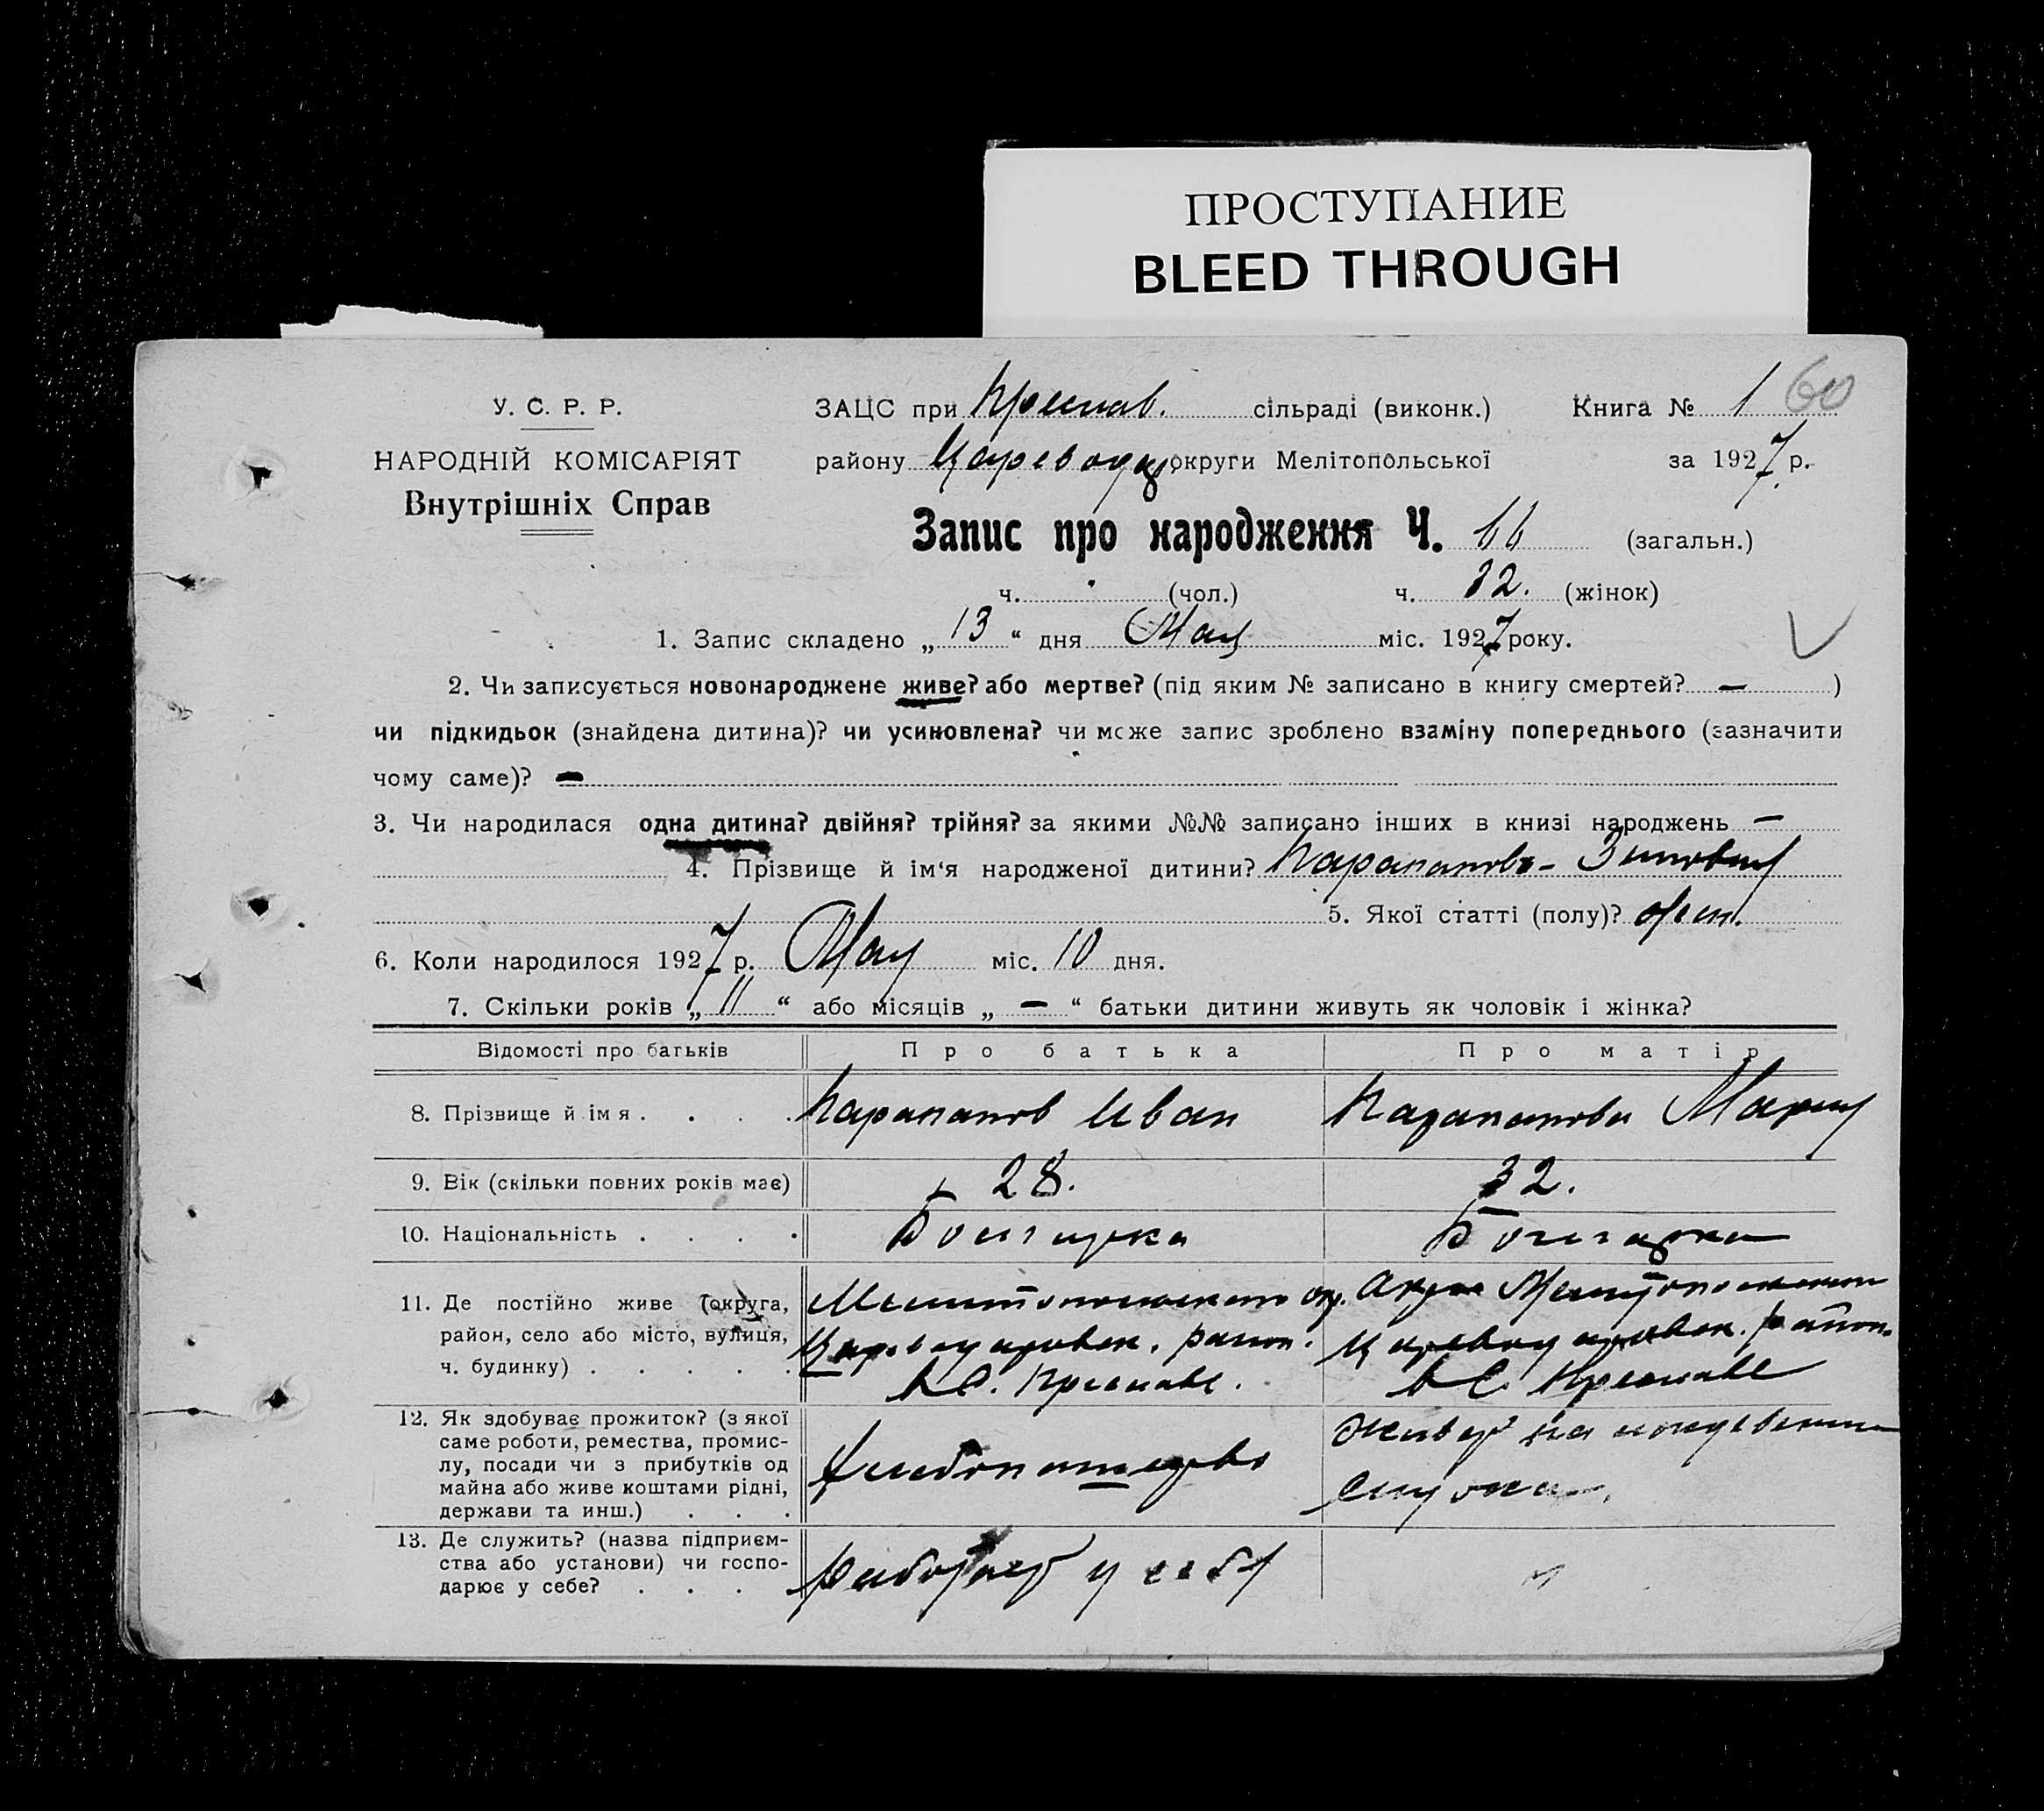 ПРОСТУПАНИЕ
BLEED THROUGH
У. С. Р. Р.
НАРОДНІЙ КОМІСАРІЯТ
Внутрішніх Справ
ЗАЦС при Преслав. сільраді (виконк.) Книга № 1 60
району Цареводар округи Мелітопольської за 1927 р.
Запис про народження Ч. 66 (загальн.)
ч. (чол.) ч. 32. (жінок)
1. Запис складено „ 13 “ дня Мая міс. 1927 року.
2. Чи записується новонароджене живе? або мертве? (під яким № записано в книгу смертей? — )
чи підкидьок (знайдена дитина)? чи усиновлена? чи може запис зроблено взаміну попереднього (зазначити
чому саме)? —
3. Чи народилася одна дитина? двійня? трійня? за якими №№ записано інших в книзі народжень —
4. Прізвище й ім‘я народженої дитини? Карапапова - Зиновия
5. Якої статті (полу)? жен.
6. Коли народилося 1927 р. Мая міс. 10 дня.
7. Скільки років „ 11 “ або місяців „ — “ батьки дитини живуть як чоловік і жінка?
Відомості про батьків Про батька Про матір
8. Прізвище й ім я . . . . Карапапов Иван Карапапова Мария
9. Вік (скільки повних років має) 28. 32.
10. Національність . . . . Болгарка Болгарка
11. Де постійно живе (округа,
район, село або місто, вулиця,
ч. будинку) . . . . .
Мелитопольского окр.
Царевдаровск. район.
в С. Преславе.
Мелитопольского
Цареводаровск. район.
в С. Преславе
12. Як здобуває прожиток? (з якої
саме роботи, ремества, промис-
лу, посади чи з прибутків од
майна або живе коштами рідні,
держави та инш.) . . .
Хлебопашество
живет на иждевении
13. Де служить? (назва підприєм-
ства або установи) чи госпо-
дарює у себе? . . .
работает у себя